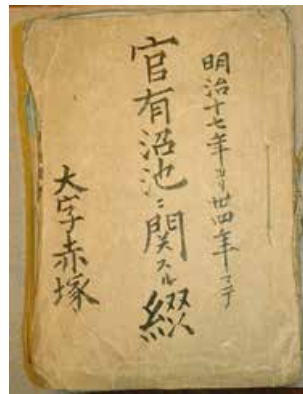 明治十七年ヨリ卅四年マテ
官有沼池ニ関スル綴
大字赤塚